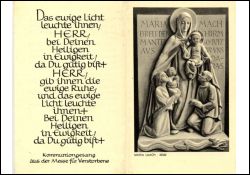 Das ewige licht
leuchte ihnen,
HERR,
bei Deinen
Heiligen
in Ewigkeit,
da Du gütig bist+
HERR,
gib ihnen die
ewige Ruhe,
und das ewige
licht leuchte
ihnen+
Bei Deinen
Heiligen
in Ewigkeit,
da Du gütig bist+
Kommuniongesang
Aus der Messe für Verstorbene
MARIA MACH